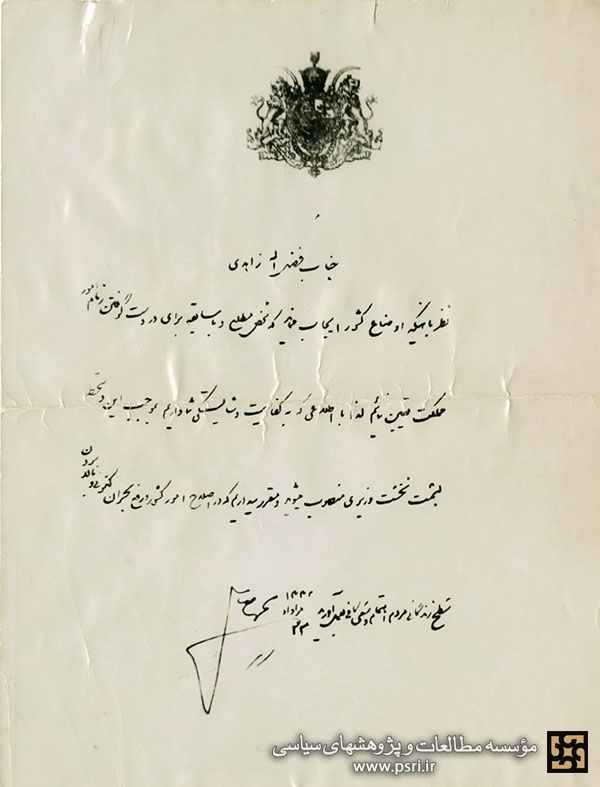 جناب فضل اله زاهدی
نظر باینکه اوضاع کشور ایجاب مینماید که شخص مطلع و با سابقه برای در دست گرفتن زمام امور
مملکت تعیین نمائیم لذا با اطلاعی که به کفایت و شایستگی شما داریم بموجب این دستخط
بسمت نخست وزیری منصوب میشوید و مقرر میداریم که در اصلاح امور کشور و رفع بحران کنونی و بالا بردن
سطح زندگانی مردم اهتمام و سعی کافی بعمل آورید
۱۳۳۲
مرداد
۲۲
مؤسسه مطالعات و پژوهشهای سیاسی
www.psri.ir